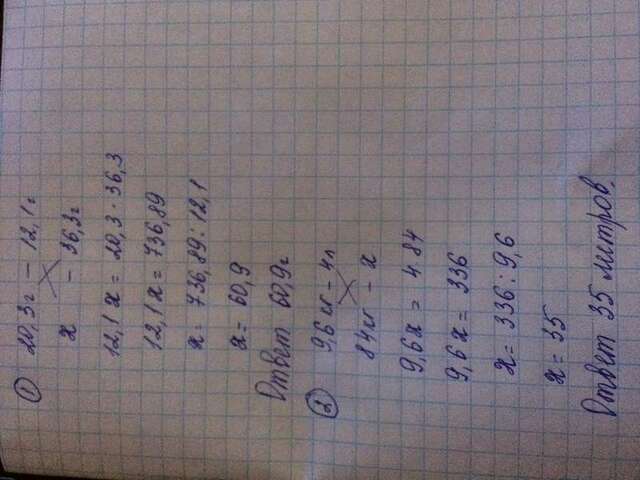 1 20,3г – 12,1г
х – 36,3г
12,1 х = 20,3 · 36,3
12,1 х = 736,89
х = 736,89 : 12,1
х = 60,9
Ответ 60,9г
2 9,6 кг – 4л
84кг – х
9,6х = 4·84
9,6 х = 336
х = 336 : 9,6
х = 35
Ответ 35 литров.